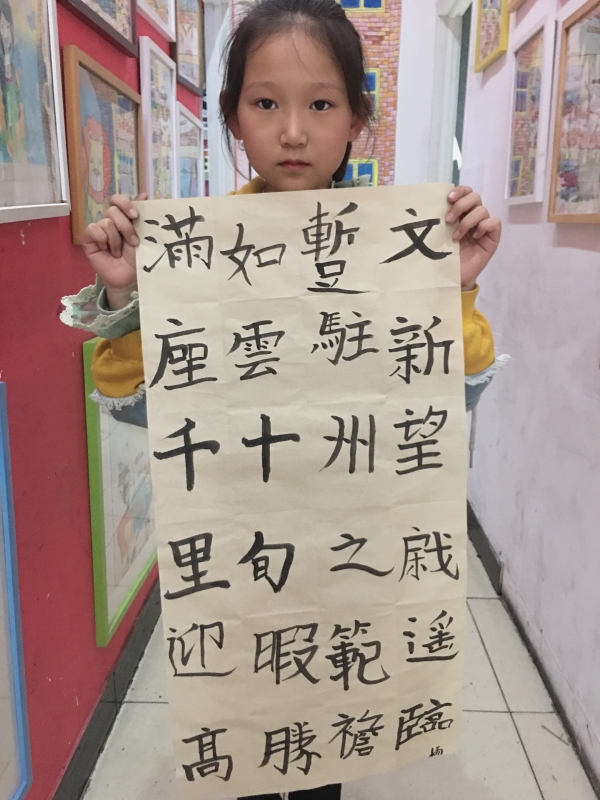 文新望戟遥臨
蹔駐州之範襜
如雲十旬暇勝
滿座千里迎髙